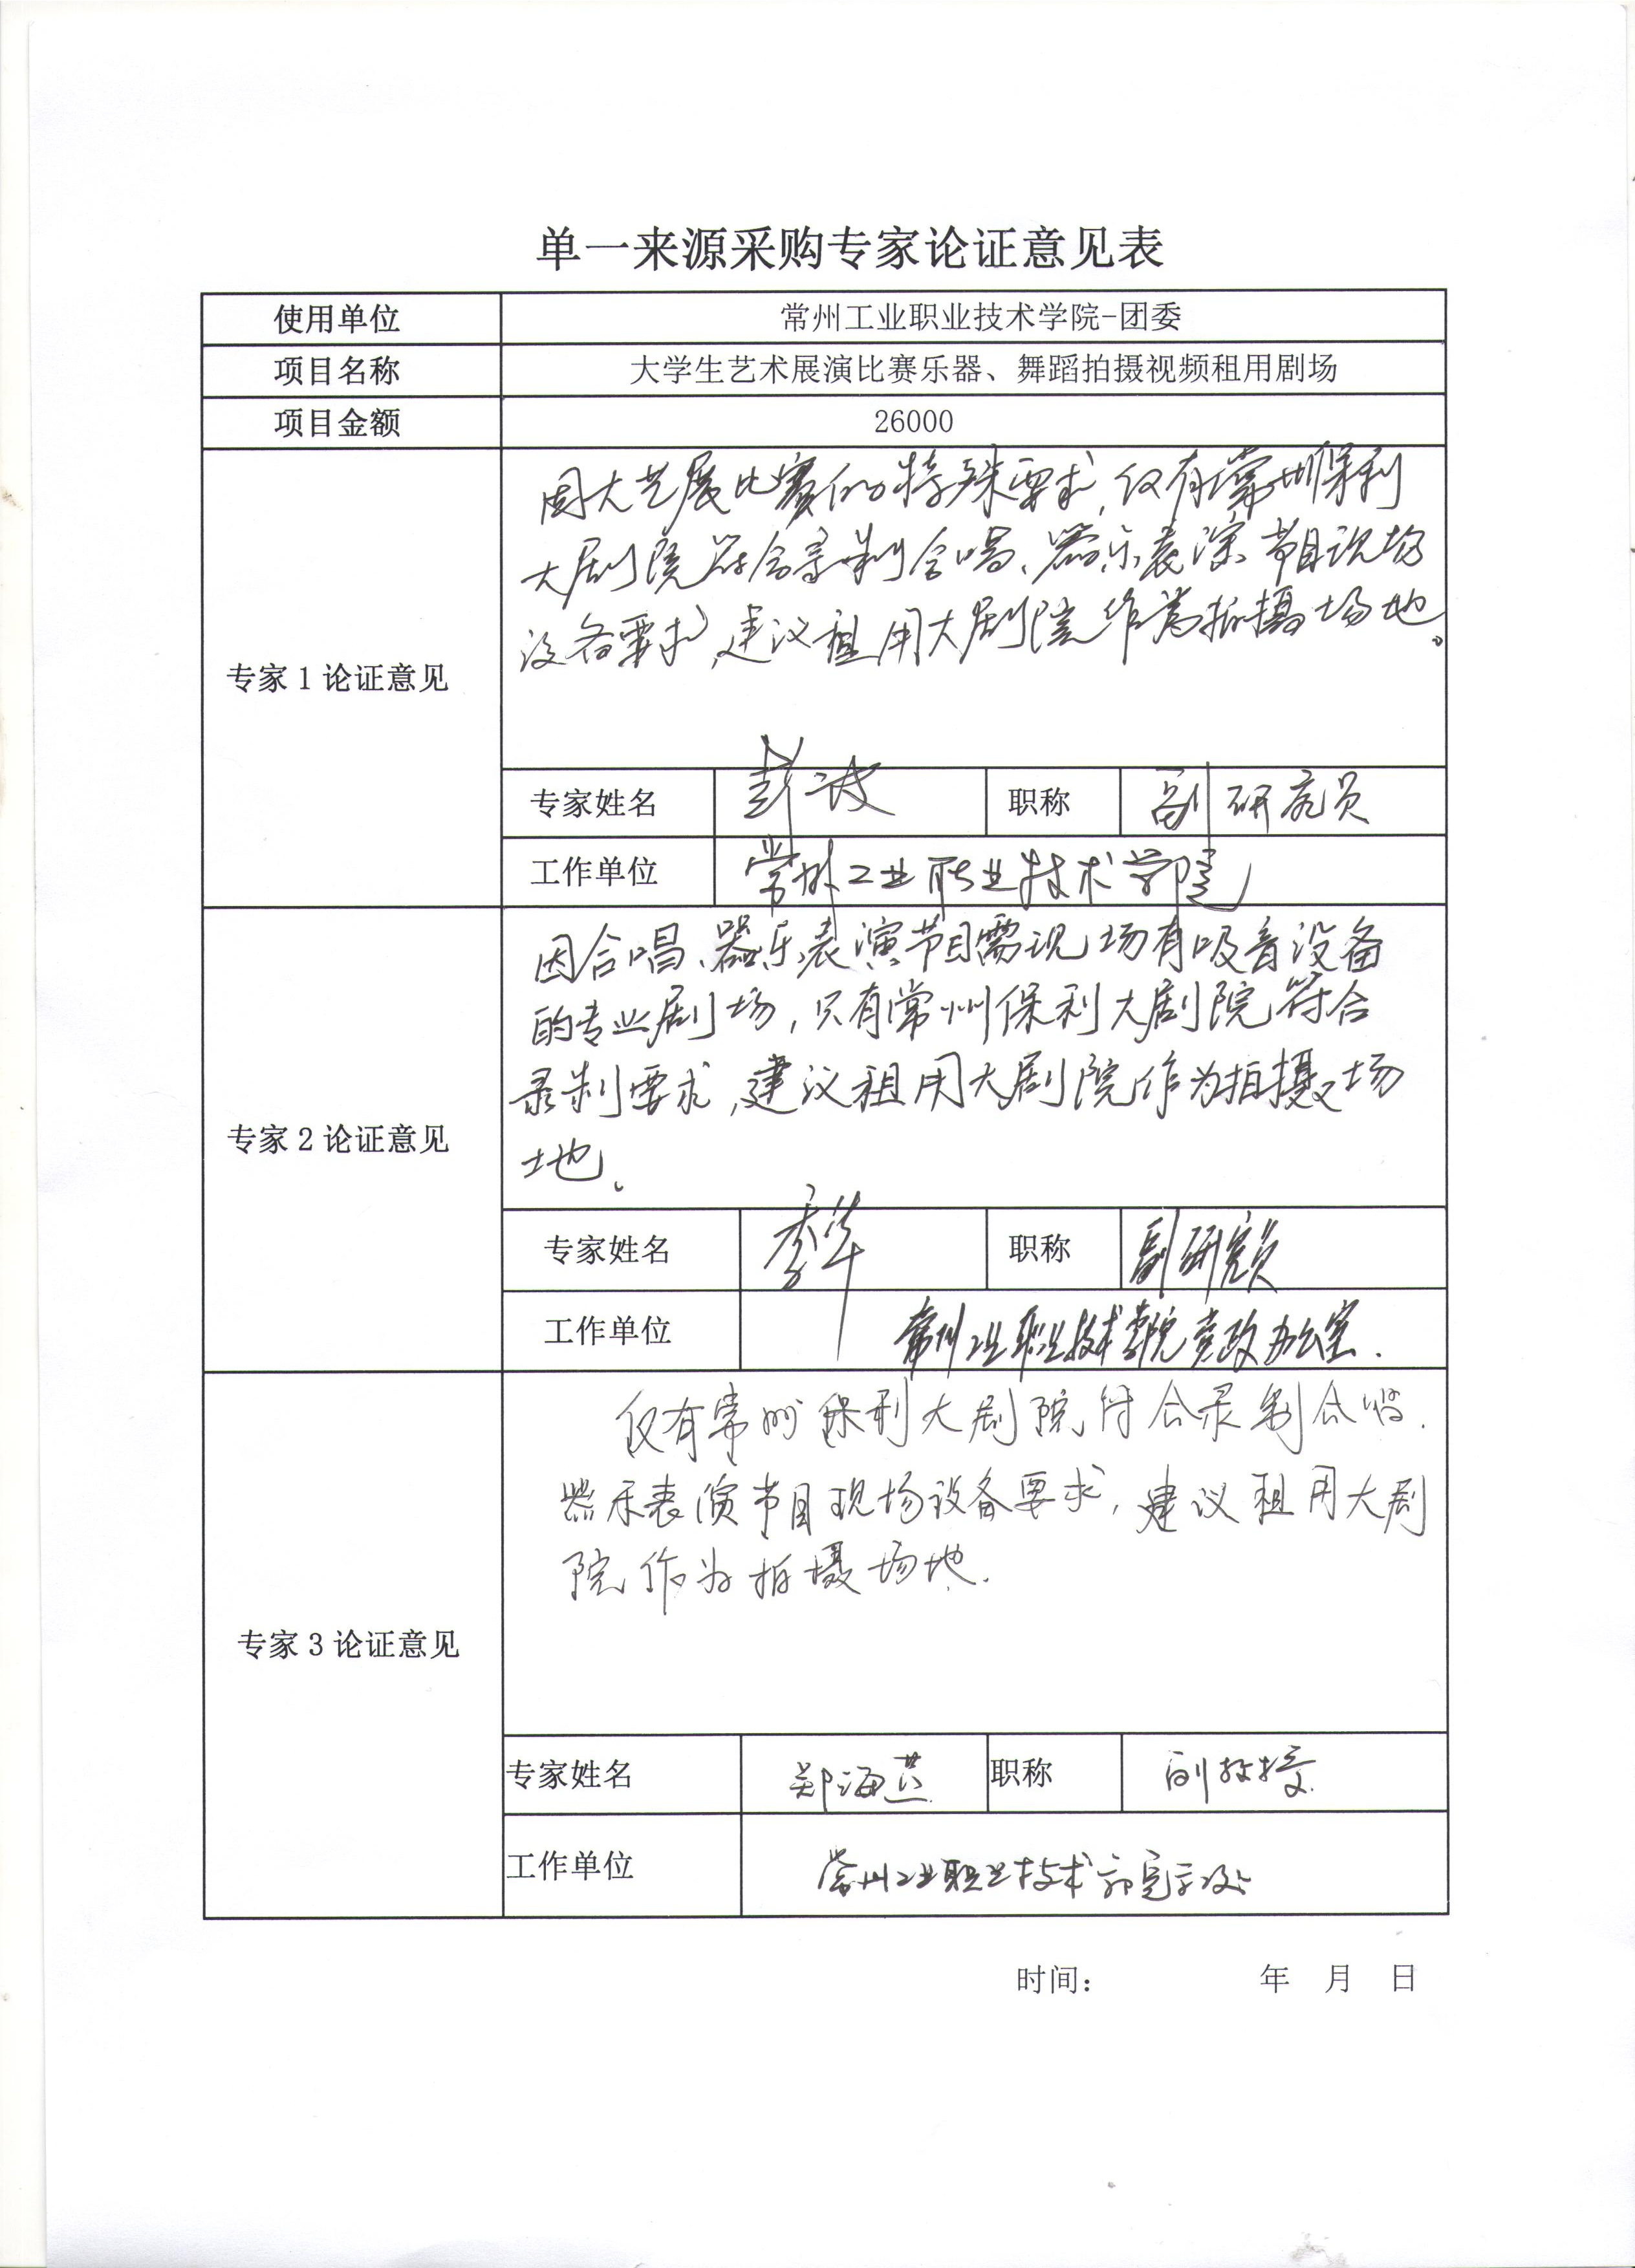 单一来源采购专家论证意见表
使用单位 常州工业职业技术学院-团委
项目名称 大学生艺术展演比赛乐器、舞蹈拍摄视频租用剧场
项目金额 26000
专家1论证意见
因大艺展比赛的特殊要求,仅有常州保利
大剧院符合录制合唱、器乐表演节目现场
设备要求,建议租用大剧院作为拍摄场地。
专家姓名 彭波 职称 副研究员
工作单位 常州工业职业技术学院
专家2论证意见
因合唱、器乐表演节目需现场有吸音设备
的专业剧场,只有常州保利大剧院符合
录制要求,建议租用大剧院作为拍摄场
地。
专家姓名 李华 职称 副研究员
工作单位 常州工业职业技术学院党政办公室.
专家3论证意见
仅有常州保利大剧院符合录制合唱.
器乐表演节目现场设备要求,建议租用大剧
院作为拍摄场地.
专家姓名 郑海燕 职称 副教授
工作单位 常州工业职业技术学院
时间: 年 月 日